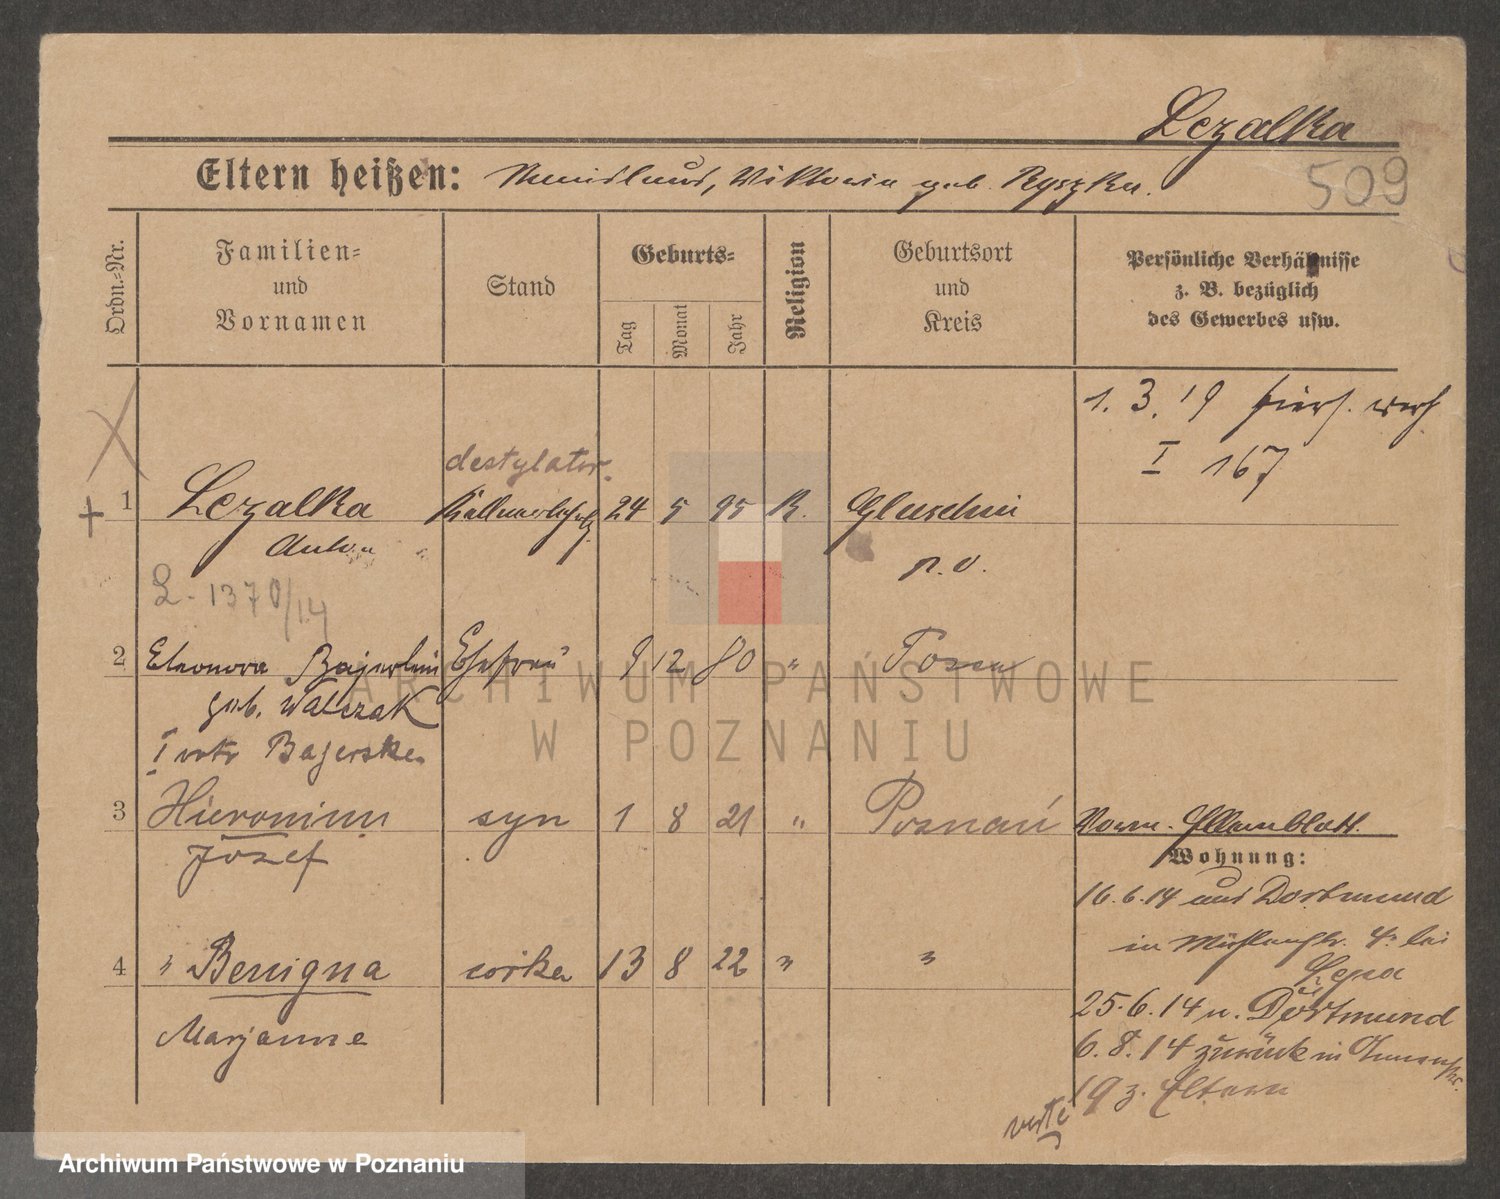 Lezalka
509
Eltern heißen: Viktoria geb. Ryszka.
Ordn.-Nr.
Familien-
und
Vornamen
Stand
Geburts-
Tag
Monat
Jahr
Religion
Geburtsort
und
Kreis
Persönliche Verhältnisse
z. B. bezüglich
des Gewerbes usw.
1. 3. 19
I 167
destylator
+ 1 Lezalka 24 5 95 K. Gluschin
Anton p. O.
L. 1370/14
2 Eleonora Bajerlein Ehefrau 9 12 80 " Posen
geb. Walczak
I voto Bajerske
3 Hieronim syn 1 8 21 " Poznań
Józef
Wohnung:
16.6.14 aus Dortmund
in 4 bei
Lepa
4 " Benigna córka 13 8 22 " "
Marjanna
25.6.14 n. Dortmund
6.8.14 zurück in
19 z. Eltern
verte
ARCHIWUM PAŃSTWOWE
W POZNANIU
Archiwum Państwowe w Poznaniu